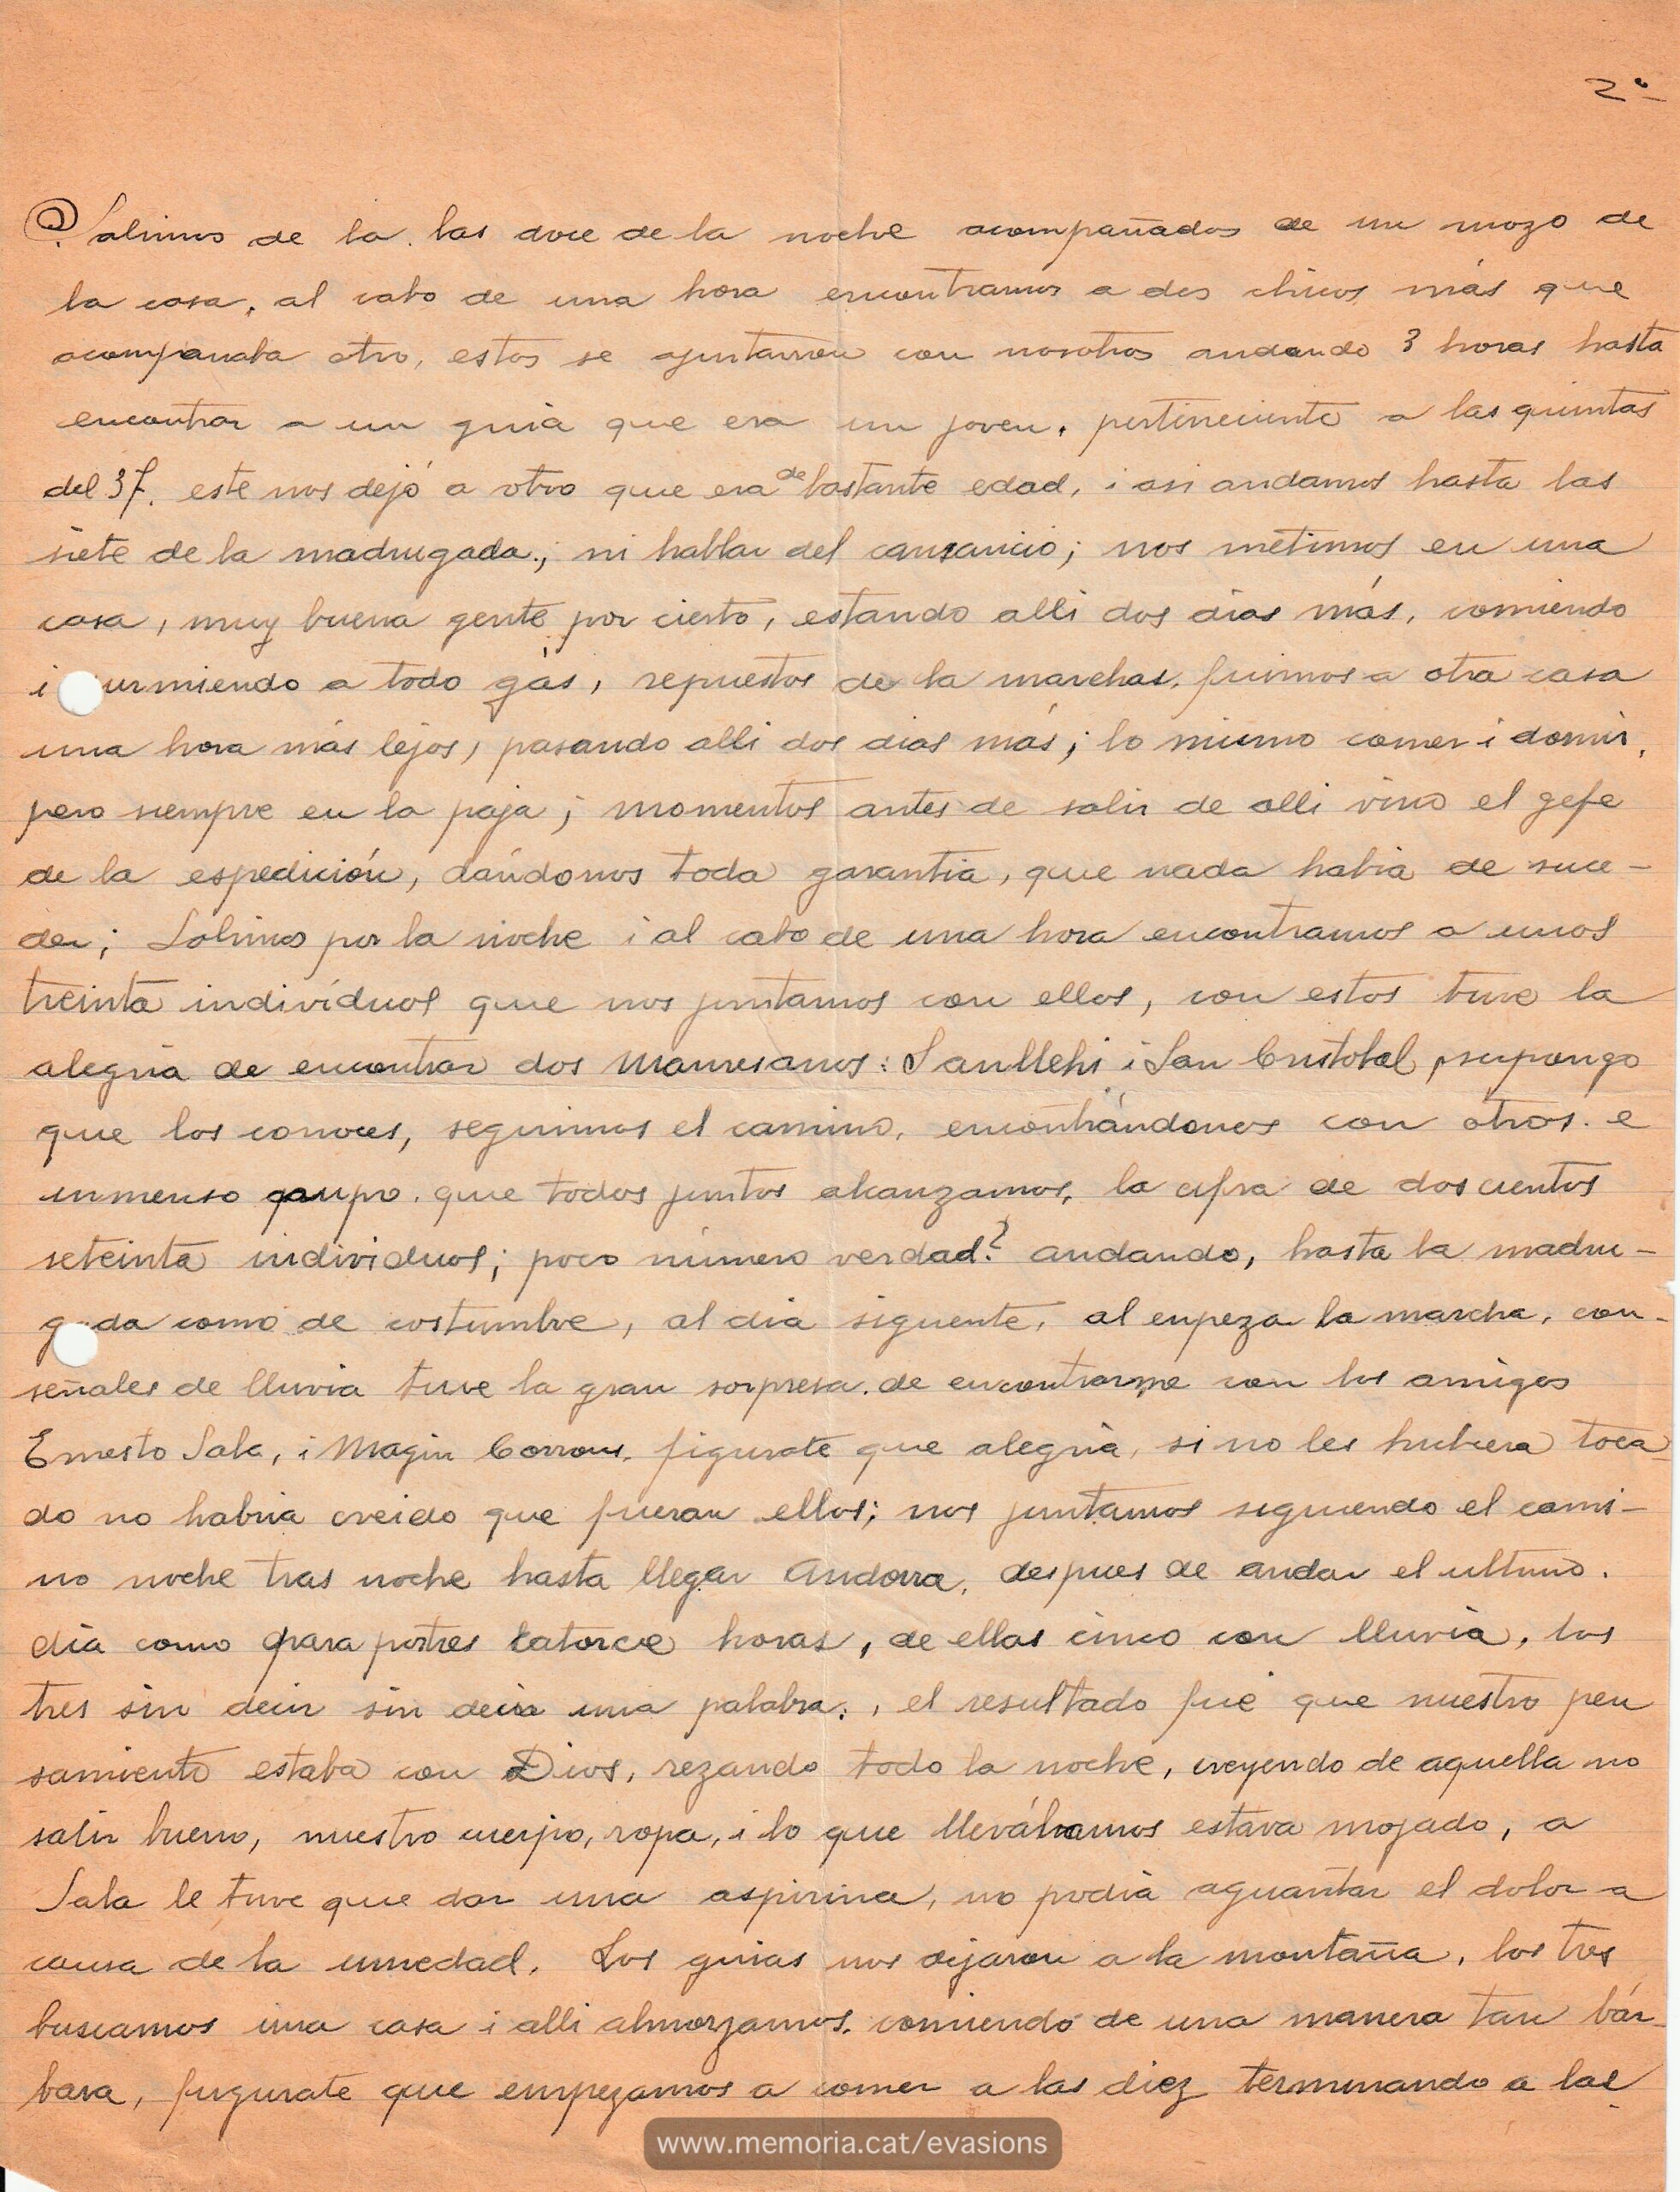 2ª
Salimos de la. las doce de la noche acompañados de un mozo de
la casa, al cabo de una hora encontramos a dos chicos más que
acompanaba otro, estos se ajuntarron con nosotros andando 3 horas hasta
encontrar a un guia que era un joven, pertineciente a las quintas
del 37. este nos dejó a otro que era de bastante edad, i asi andamos hasta las
siete de la madrugada.; ni hablar del canzancio; nos metimos en una
casa, muy buena gente por cierto, estando alli dos dias más, comiendo
i urmiendo a todo gás, repuestos de la marchas, fuimos a otra casa
una hora más lejos, pasando alli dos dias más; lo mismo comer i domir,
pero siempre en la paja; momentos antes de salir de alli vino el gefe
de la espedición, dándonos toda garantia, que nada habia de suce-
der; Salimos por la noche i al cabo de una hora encontramos a unos
treinta individuos que nos juntamos con ellos, con estos tuve la
alegria de encontrar dos Manresanos: Sanllehi i San Cristobal, supongo
que los conoces, seguimos el camino, encontrándonos con otros. e
inmenso grupo. que todos juntos alcanzamos, la cifra de dos cientos
seteinta individuos; poco número verdad? andando, hasta la madru-
gada como de costumbre, al dia siguente, al enpeza la marcha, con-
señales de lluvia tuve la gran sorpresa. de encontrarme con los amigos
Ernesto Sala, i Magin Corrons, figurate que alegria, si no les hubiera toca-
do no habria creido que fueran ellos; nos juntamos siguiendo el cami-
no noche tras noche hasta llegar Andorra, despues de andar el ultimo.
dia como para postres catorce horas, de ellas cinco con lluvia, los
tres sin decir sin decir una palabra., el resultado fué que nuestro pen
samiento estaba con Dios, rezando todo la noche, creyendo de aquella no
salir bueno, nuestro cuerpo, ropa, i lo que llevábamos estava mojado, a
Sala le tuve que dar una aspirina, no podia aguantar el dolor a
causa de la umedad. Los guias nos dijaron a la montaña, los tres
buscamos una casa i alli almorzamos, comiendo de una manera tan bár-
bara, figurate que empezamos a comer a las diez terminando a las
www.memoria.cat/evasions